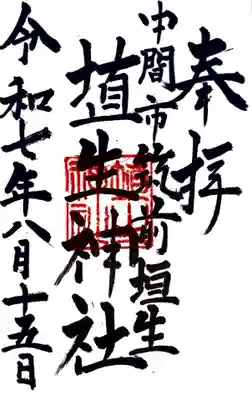 奉拝
中間市筑前垣生
埴生神社
令和七年八月十五日